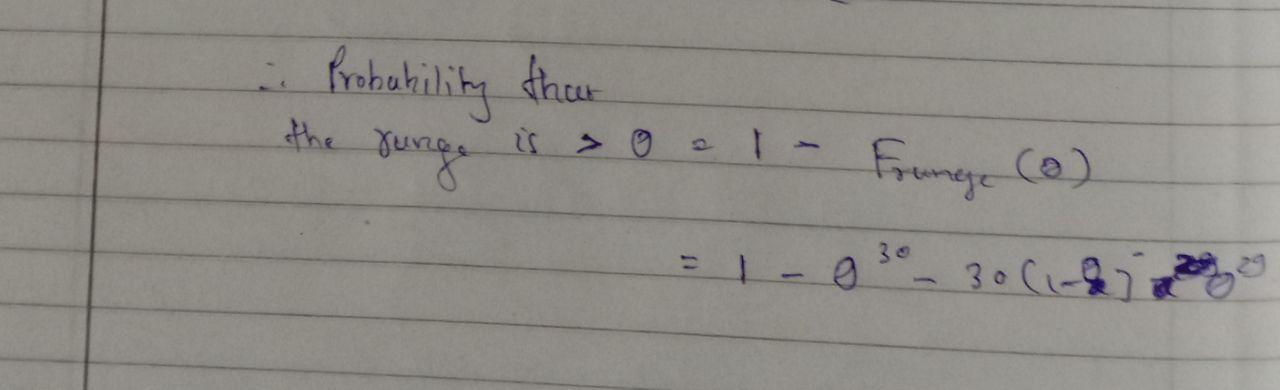 ∴ Probability that
the range is > θ = 1 - F range (θ)
= 1 - θ^30 - 30 (1-θ) θ^29